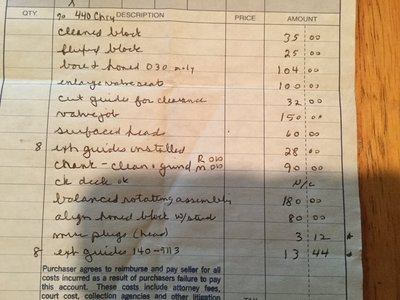 QTY. DESCRIPTION PRICE AMOUNT
440 Chry
cleaned block 35 00
fluxed block 25 00
bore & honed 030 only 104 00
enlarge valve seats 100 00
cut guides for clearance 32 00
valve job 150 00
surfaced heads 60 00
8 exh guides installed 28 00
crank - clean & grind R 010 M 010 90 00
ck deck ok N/C
balanced rotating assembly 180 00
align honed block w/stud 80 00
plugs (head) 3 12 *
8 exh guides 140-9113 13 44 *
Purchaser agrees to reimburse and pay seller for all
costs incurred as a result of purchasers failure to pay
this account. These costs include attorney fees,
court cost, collection agencies and other litigation